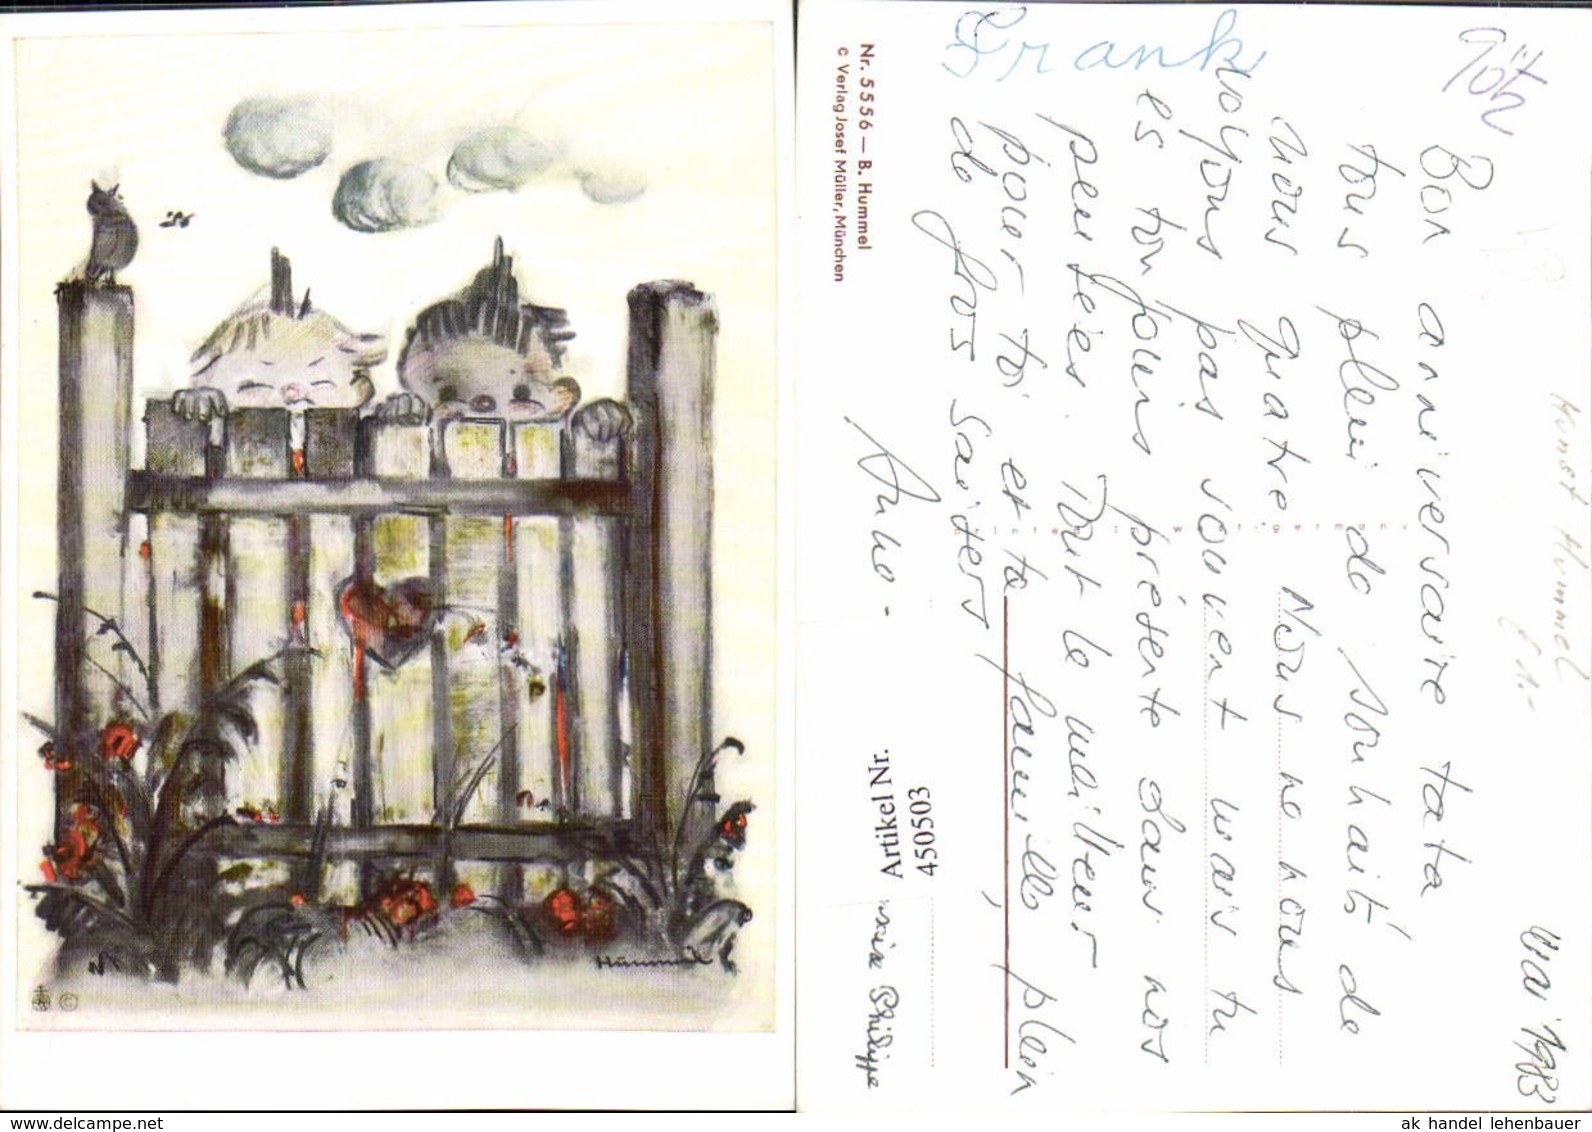 Hummel
Nr. 5556 — B. Hummel
© Verlag Josef Müller, München
Frank
Götz
Mai 1983
Bon anniversaire tata
tous plein de souhaits de
nous quatre Nous ne nous
voyons pas souvent mais tu
es toujours présente dans nos
pensées. Tout le meilleur
pour toi et ta famille, plein
de gros baisers
Philippe
Kunst Hummel
Artikel Nr.
450503
www.delcampe.net
ak handel lehenbauer